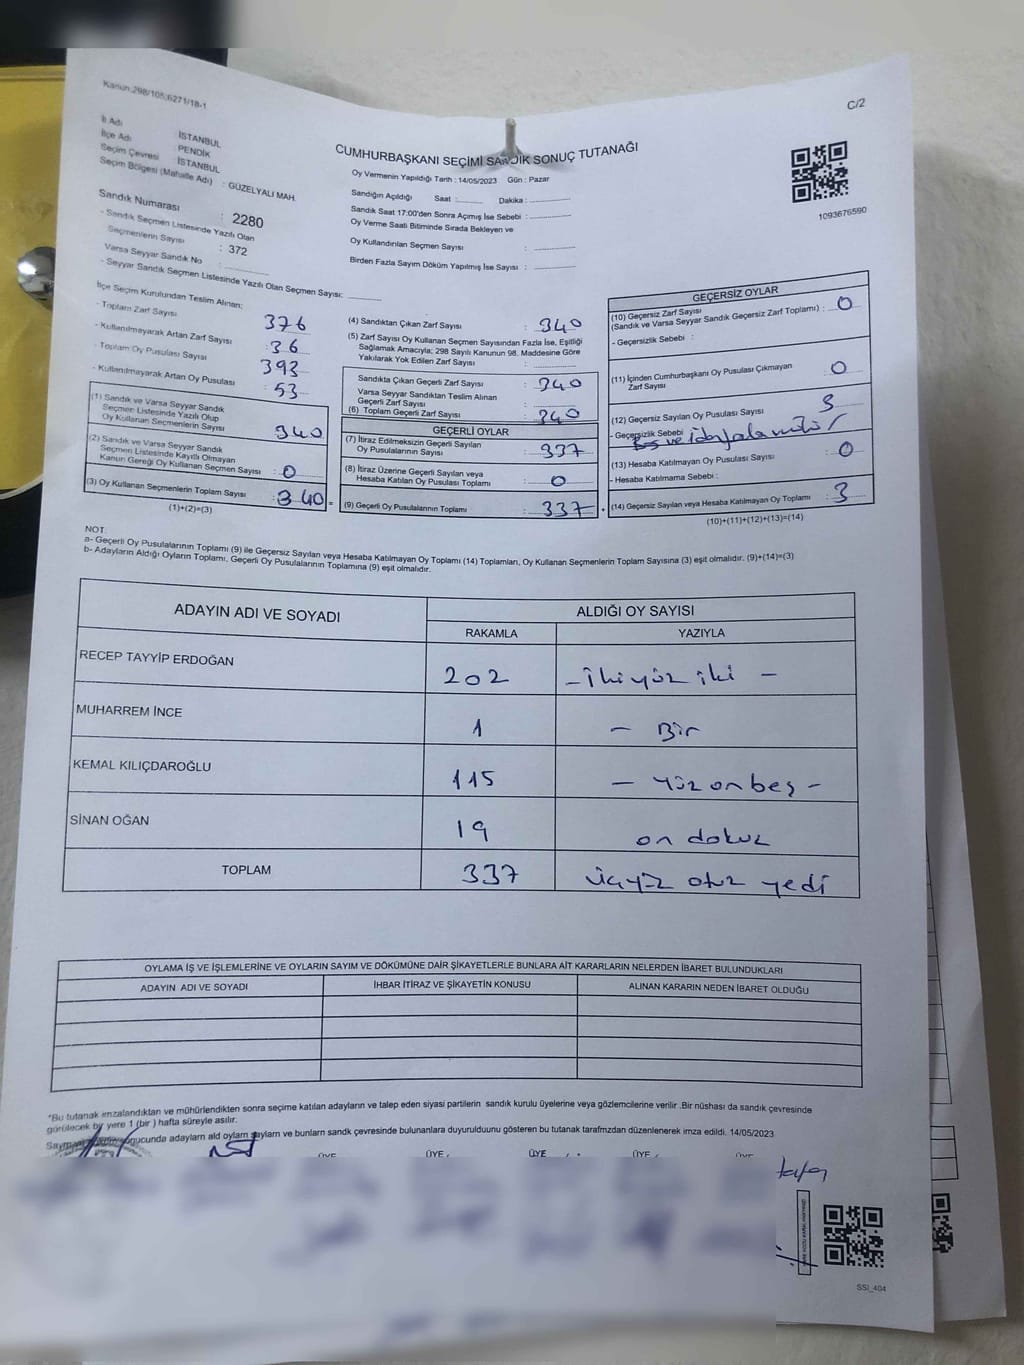 Kanun:298/105;6271/18-1
C/2
İl Adı İSTANBUL
İlçe Adı : PENDİK
Seçim Çevresi : İSTANBUL
Seçim Bölgesi (Mahalle Adı) : GÜZELYALI MAH.
CUMHURBAŞKANI SEÇİMİ SANDIK SONUÇ TUTANAĞI
Oy Vermenin Yapıldığı Tarih : 14/05/2023 Gün : Pazar
Sandığın Açıldığı Saat : Dakika :
Sandık Saat 17:00'den Sonra Açımış İse Sebebi :
Oy Verme Saati Bitiminde Sırada Bekleyen ve
Oy Kullandırılan Seçmen Sayısı :
Birden Fazla Sayım Döküm Yapılmış İse Sayısı :
1093676590
Sandık Numarası : 2280
- Sandık Seçmen Listesinde Yazılı Olan
Seçmenlerin Sayısı : 372
Varsa Seyyar Sandık No :
- Seyyar Sandık Seçmen Listesinde Yazılı Olan Seçmen Sayısı:
İlçe Seçim Kurulundan Teslim Alınan;
- Toplam Zarf Sayısı 376
- Kullanılmayarak Artan Zarf Sayısı : 36
- Toplam Oy Pusulası Sayısı 393
- Kullanılmayarak Artan Oy Pusulası : 53
(1) Sandık ve Varsa Seyyar Sandık
Seçmen Listesinde Yazılı Olup
Oy Kullanan Seçmenlerin Sayısı : 340
(2) Sandık ve Varsa Seyyar Sandık
Seçmen Listesinde Kayıtlı Olmayan
Kanun Gereği Oy Kullanan Seçmen Sayısı : 0
(3) Oy Kullanan Seçmenlerin Toplam Sayısı : 340 =
(1)+(2)=(3)
(4) Sandıktan Çıkan Zarf Sayısı : 340
(5) Zarf Sayısı Oy Kullanan Seçmen Sayısından Fazla İse, Eşitliği
Sağlamak Amacıyla; 298 Sayılı Kanunun 98. Maddesine Göre
Yakılarak Yok Edilen Zarf Sayısı :
Sandıkta Çıkan Geçerli Zarf Sayısı : 340
Varsa Seyyar Sandıktan Teslim Alınan
Geçerli Zarf Sayısı :
(6) Toplam Geçerli Zarf Sayısı : 340
GEÇERLİ OYLAR
(7) İtiraz Edilmeksizin Geçerli Sayılan
Oy Pusulalarının Sayısı : 337
(8) İtiraz Üzerine Geçerli Sayılan veya
Hesaba Katılan Oy Pusulası Toplamı : 0
(9) Geçerli Oy Pusulalarının Toplamı : 337 +
GEÇERSİZ OYLAR
(10) Geçersiz Zarf Sayısı
(Sandık ve Varsa Seyyar Sandık Geçersiz Zarf Toplamı) : 0
- Geçersizlik Sebebi :
(11) İçinden Cumhurbaşkanı Oy Pusulası Çıkmayan
Zarf Sayısı : 0
(12) Geçersiz Sayılan Oy Pusulası Sayısı : 3
- Geçersizlik Sebebi
(13) Hesaba Katılmayan Oy Pusulası Sayısı : 0
- Hesaba Katılmama Sebebi :
(14) Geçersiz Sayılan veya Hesaba Katılmayan Oy Toplamı : 3
(10)+(11)+(12)+(13)=(14)
NOT
a- Geçerli Oy Pusulalarının Toplamı (9) ile Geçersiz Sayılan veya Hesaba Katılmayan Oy Toplamı (14) Toplamları, Oy Kullanan Seçmenlerin Toplam Sayısına (3) eşit olmalıdır. (9)+(14)=(3)
b- Adayların Aldığı Oyların Toplamı, Geçerli Oy Pusulalarının Toplamına (9) eşit olmalıdır.
ADAYIN ADI VE SOYADI ALDIĞI OY SAYISI
RAKAMLA YAZIYLA
RECEP TAYYİP ERDOĞAN 202 - İkiyüz iki -
MUHARREM İNCE 1 - Bir
KEMAL KILIÇDAROĞLU 115 - Yüz onbeş -
SİNAN OĞAN 19 on dokuz
TOPLAM 337 üçyüz otuz yedi
OYLAMA İŞ VE İŞLEMLERİNE VE OYLARIN SAYIM VE DÖKÜMÜNE DAİR ŞİKAYETLERLE BUNLARA AİT KARARLARIN NELERDEN İBARET BULUNDUKLARI
ADAYIN ADI VE SOYADI İHBAR İTİRAZ VE ŞİKAYETİN KONUSU ALINAN KARARIN NEDEN İBARET OLDUĞU
*Bu tutanak imzalandıktan ve mühürlendikten sonra seçime katılan adayların ve talep eden siyasi partilerin sandık kurulu üyelerine veya gözlemcilerine verilir .Bir nüshası da sandık çevresinde
görülecek bir yere 1 (bir ) hafta süreyle asılır.
adayların ald oyların sayların ve bunların sandk çevresinde bulunanlara duyurulduunu gösteren bu tutanak tarafmzdan düzenlenerek imza edildi. 14/05/2023
ÜYE ÜYE ÜYE ÜYE
SSİ_404